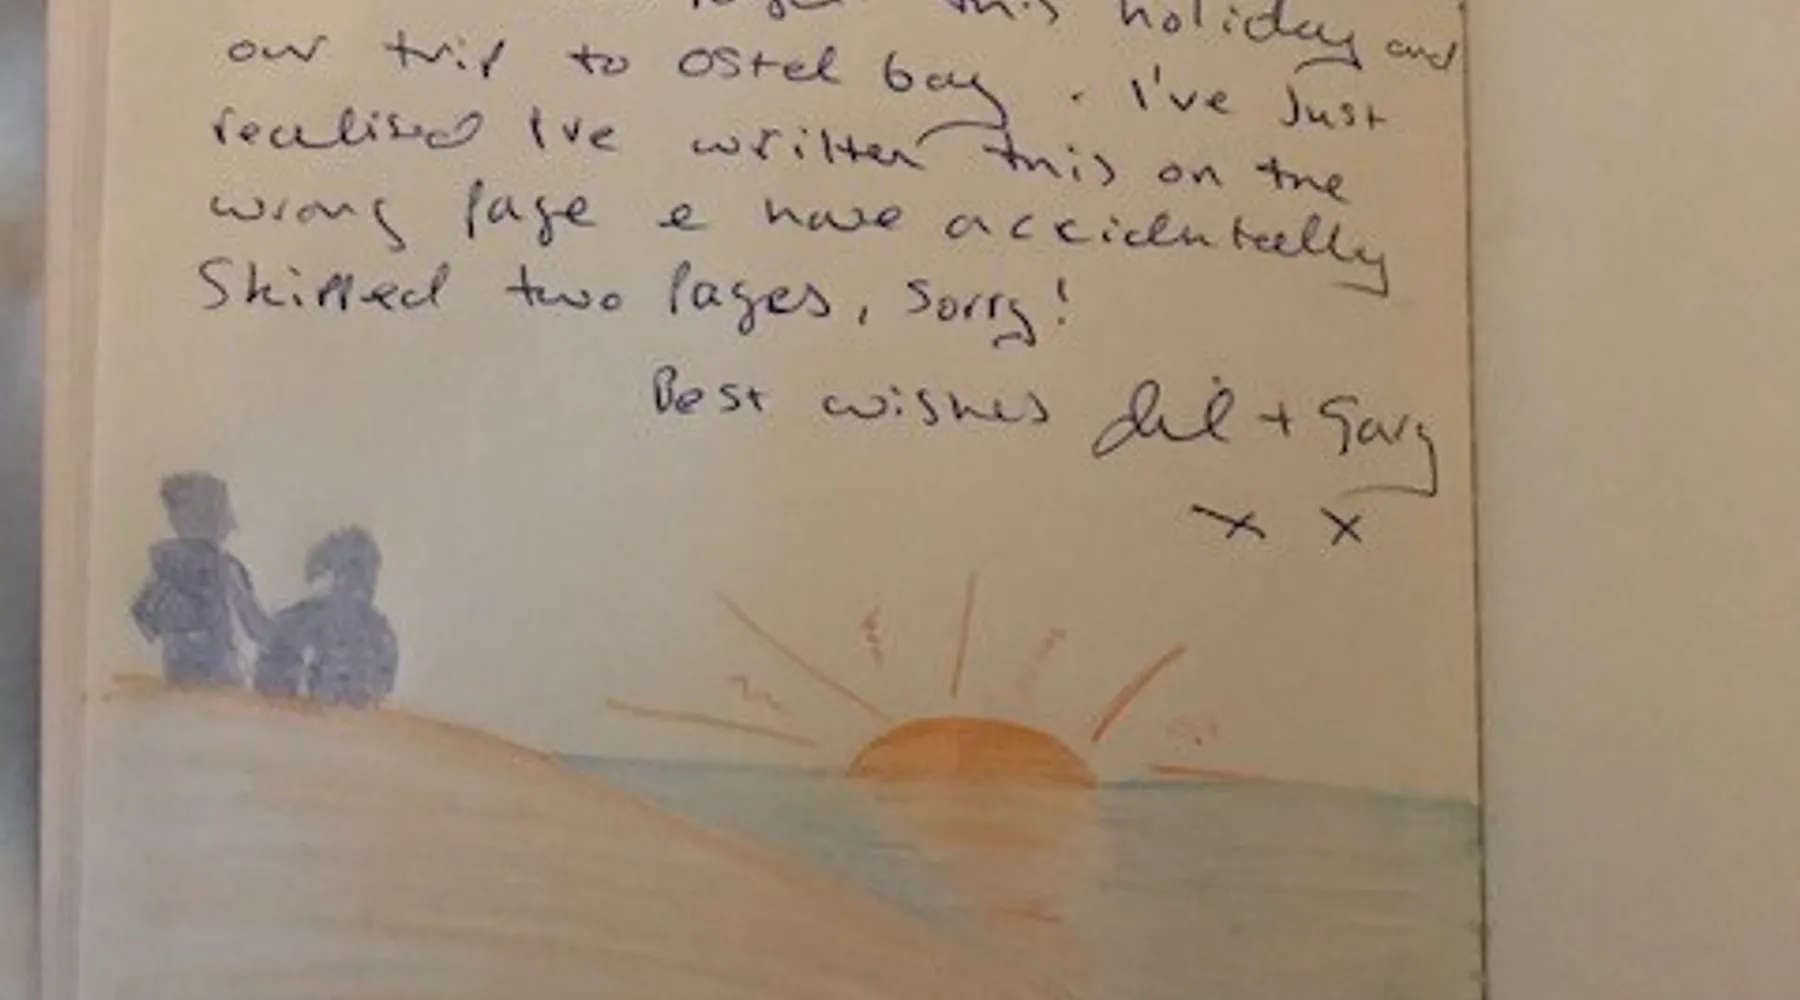 this holiday and
our trip to Ostel bay. I've Just
realised I've written this on the
wrong page & have accidentally
Skipped two pages, Sorry!
Best wishes + Gary
x x